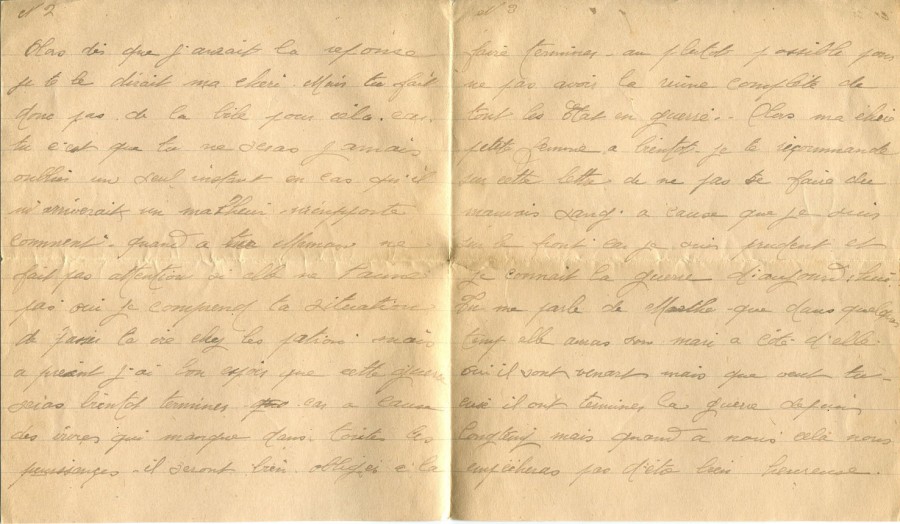 N 2
Alors dès que j'aurait la reponse
je te le dirait ma cheri. Mais tu fait
donc pas de la bile pour cela. car
tu c'est que la ne seras jamais
oublier un seul instant en cas qu'il
m'arriverait un malheur n'importe
comment. quand a ne
fait pas attention si elle ne
pas oui je comprend ta situation
de la vie chez les patrons mais
a présent j'ai bon espoir que cette guerre
seras bientot terminer car a cause
des vivres qui manque dans toute les
puissances. il seront bien obliger e la
N 3
faire terminer au plutot possible pour
ne pas avoir la ruine complète de
tout les Etat en guerre. Alors ma chère
petite femme a bientot. je te recommande
sur cette lettre de ne pas te faire du
mauvais sang a cause que je suis
sur le front car je suis prudent et
je connait la guerre d'aujourd'hui.
Tu me parle de Marthe que dans quelques
temp elle auras son mari a côté d'elle.
oui il sont venart mais que veut tu
eux il ont terminer la guerre depuis
longtemp mais quand a nous cela nous
empêcheras pas d'être bien heureuse.